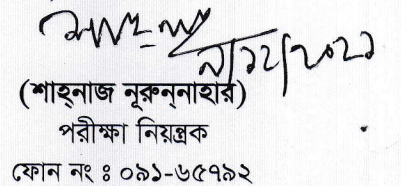 ৯/১২/২০২১
(শাহ্‌নাজ নূরুন্‌নাহার)
পরীক্ষা নিয়ন্ত্রক
ফোন নং ঃ ০৯১-৬৫৭৯২